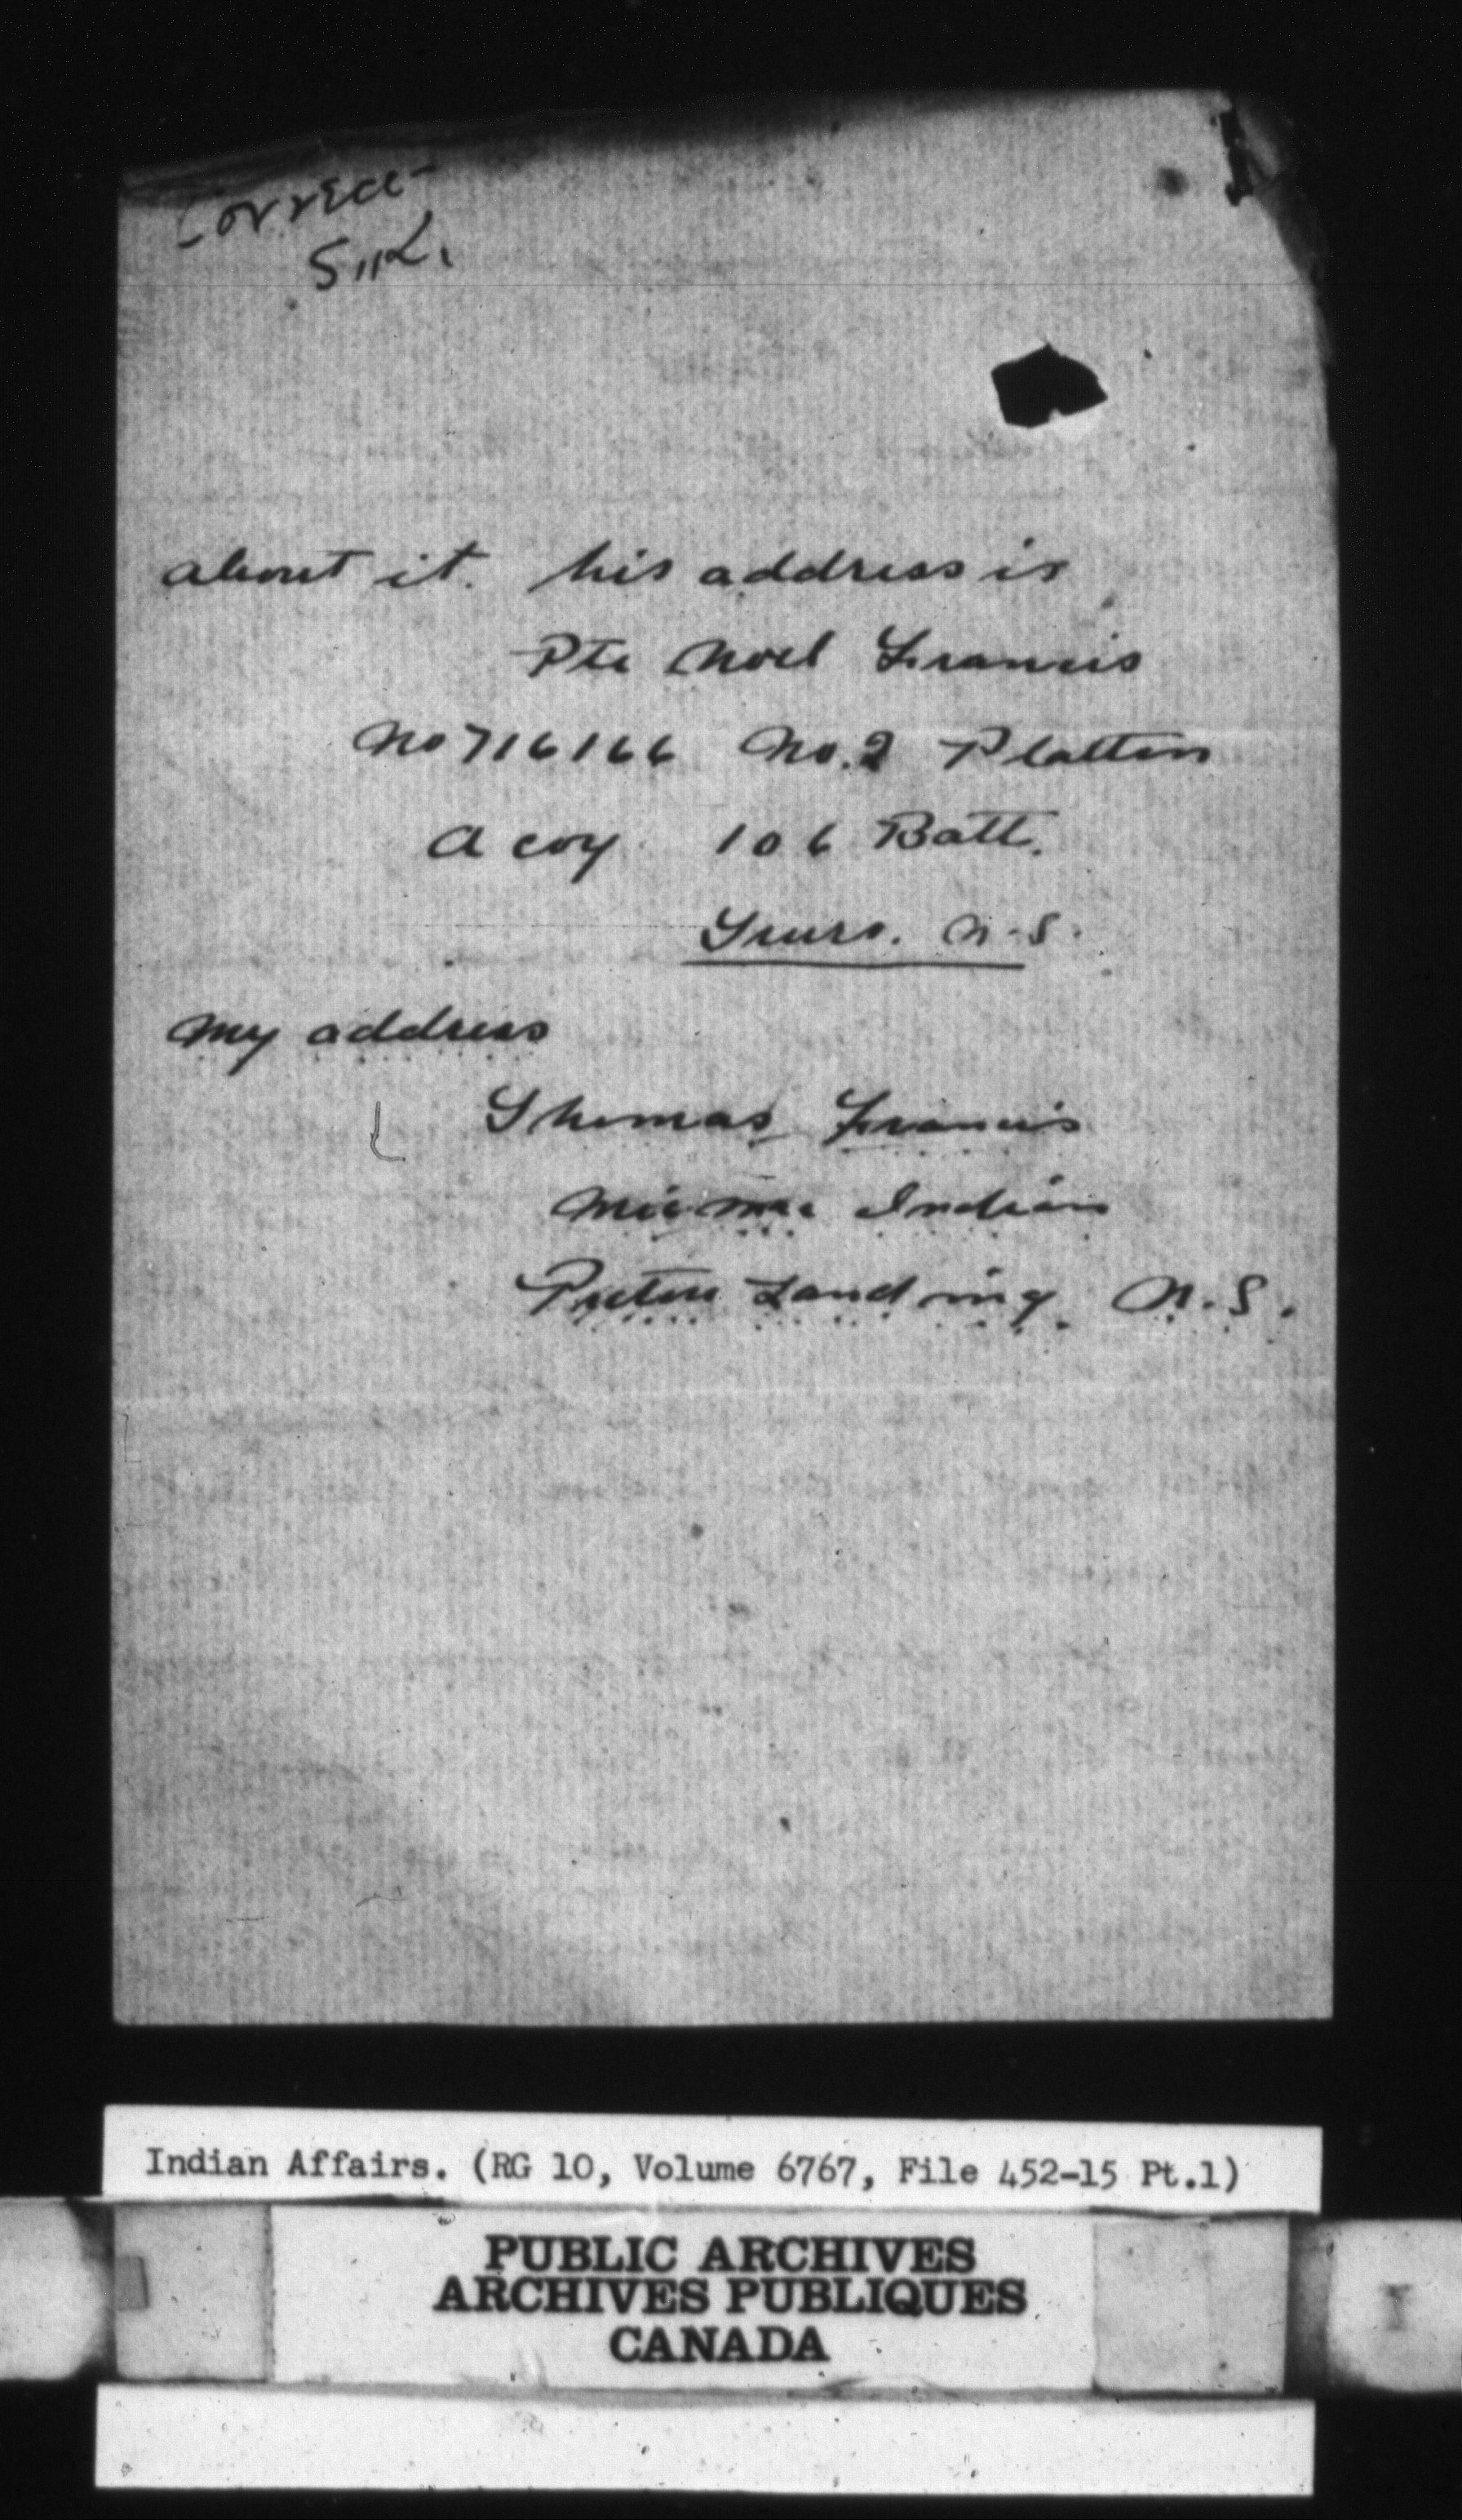 Correct
about it. his address is
Pte Noel Francis
No 716166 No. 2 Platton
A coy 106 Batt.
Truro. N.S.
My address
Thomas Francis
Micmac Indian
Pictou Landing. N.S.
Indian Affairs. (RG 10, Volume 6767, File 452-15 Pt.1)
PUBLIC ARCHIVES
ARCHIVES PUBLIQUES
CANADA